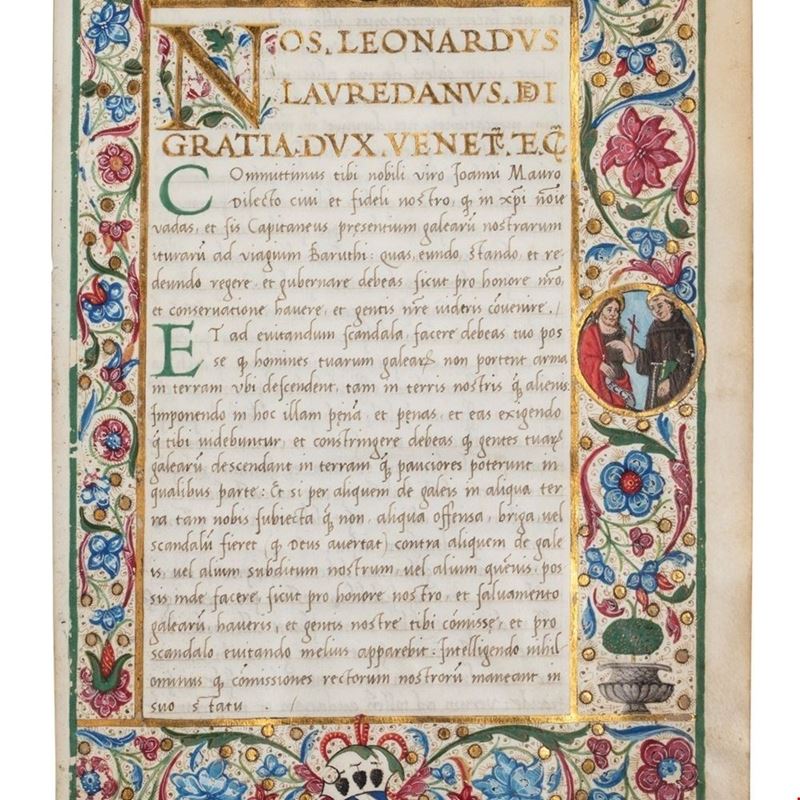 NOS. LEONARDVS
LAVREDANVS. DEI
GRATIA. DVX. VENET. E. Q̃
COmmittimus tibi nobili viro Joanni Mauro
Dilecto civi et fideli nostro, q̃ in xp̃i nõie
vadas, et sis Capitaneus presentium galearũ nostrarum
iturarũ ad viagium Baruthi: quas, eundo, stando, et re-
deundo regere, et gubernare debeas sicut pro honore nr̃o,
et conservatione, havere, et gentis nr̃e videris cõvenire./
ET ad evitandum scandala, facere debeas tuo pos
se q̃ homines tuarum galearꝝ non portent arma
in terram vbi descendent, tam in terris nostris q̃ alienis
Imponendo in hoc illam penã, et penas, et eas exigendo,
q̃ tibi videbuntur, et constringere debeas q̃ gentes tuarꝝ
galearũ descendant in terram q̃ pauciores poterunt in
qualibus parte: Et si per aliquem de galeis in aliqua ter
ra tam nobis subiecta q̃ non, aliqua offensa, briga, vel
scandalũ fieret (q̃ Deus avertat) contra aliquem de gale
is, vel alium subditum nostrum, vel alium quẽvis, pos
sis inde facere, sicut pro honore nostro, et salvamento
galearũ, haveris, et gentis nostrẽ tibi cõmissẽ, et pro
scandalo evitando melius apparebit: Intelligendo nihil-
ominus q̃ comissiones rectorum nostrorũ maneant in
suo statu